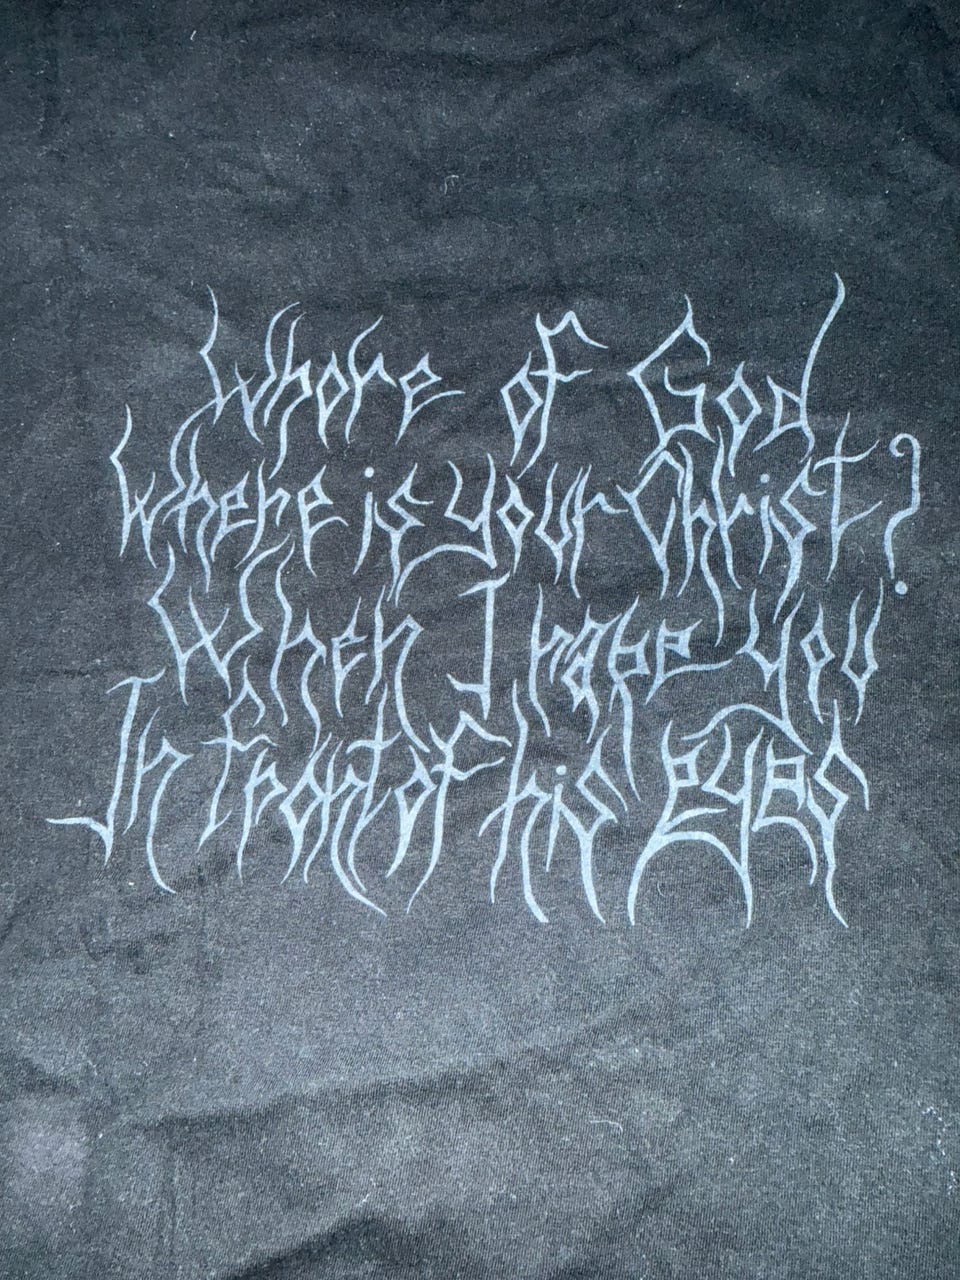 Whore of God
Where is your Christ?
When I rape you
In front of his eyes